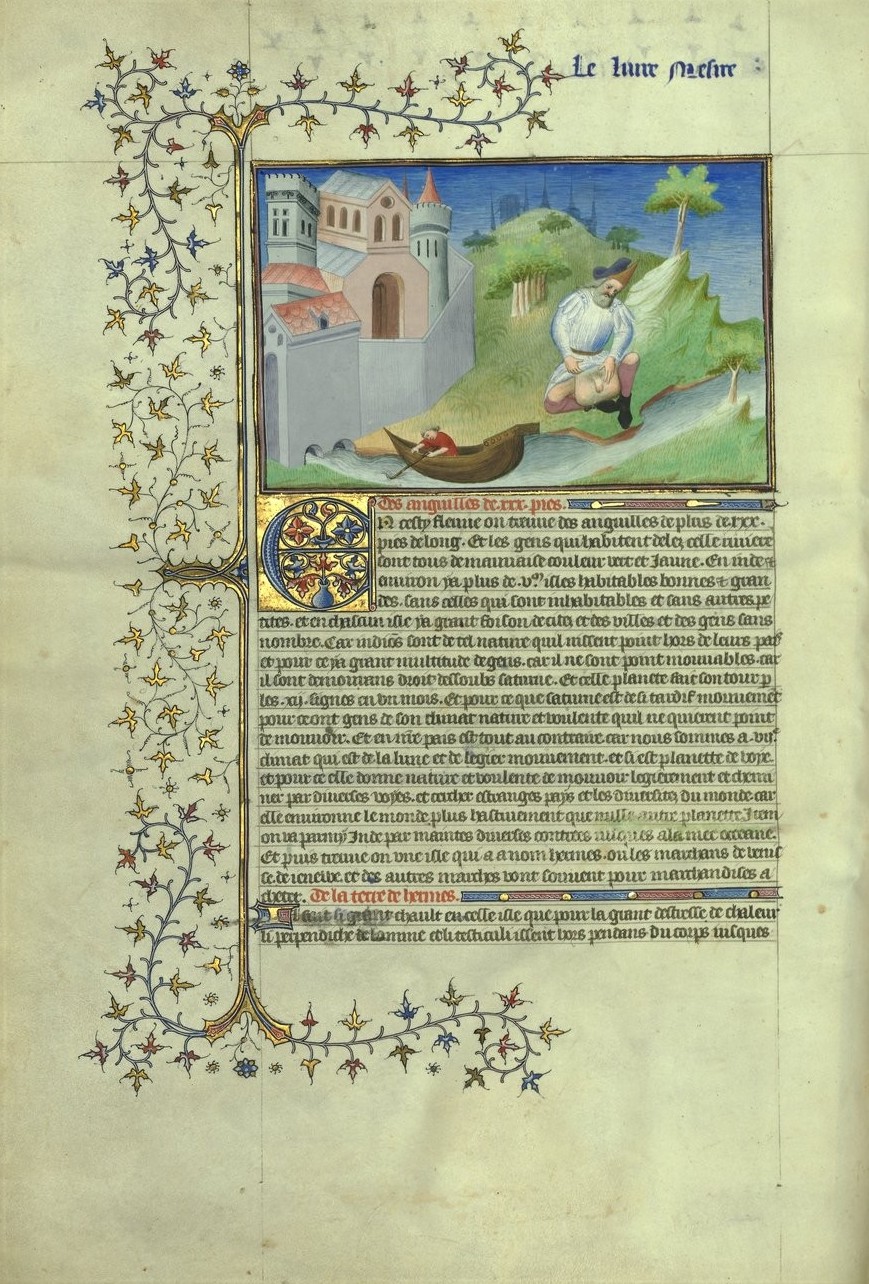 Le liure Messire
Des anguilles de .xxx. pies.
En cesty fleuue on treuue des anguilles de plus de .xxx.
pies de long. Et les gens qui habitent delez celle riuiere
sont tous de mauuaise couleur vert et Jaune. En inde et
enuiron ya plus de .v.m isles habitables bonnes et gran
des. sans celles qui sont inhabitables et sans autres pe
tites. et en chascun isle ya grant foison de cites et des villes et des gens sans
nombre. Car indiens sont de tel nature quil nissent point hors de leurs pais
et pour ce ya grant multitude de gens. car il ne sont point mouuables. car
il sont demourans droit dessoubz saturne. Et celle planete fait son tour p
les .xij. signes en vn mois. Et pour ce que saturne est de si tardif mouuement
pour ce ont gens de son climat nature et voulente quil ne quierent point
de mouuoir. Et en nre pais est tout au contraire car nous sommes a .vije
climat qui est de la lune et de legier mouuement. et si est planette de voye.
et pour ce elle donne nature et voulente de mouuoir legierement et chemi
ner par diuerses voyes. et cercher estranges pays et les diuersitez du monde. car
elle enuironne le monde plus hastiuement que nulle autre planette Item
on va parmy Inde par maintes diuerses contrees iusques a la mer occeane.
Et puis treuue on vne isle qui a a nom hermes. ou les marchans de venis
se. de ieneuue. et des autres marches vont souuent pour marchandises a
cheter. De la terre de hermes.
Il fait si grant chault en celle isle que pour la grant destresse de chaleur
li perpendicle de lomme et li testiculi issent hors pendans du corps iusques